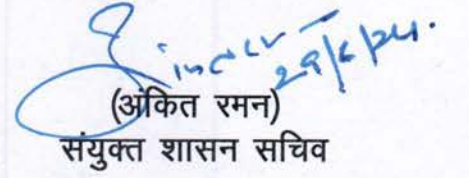 29/6/24.
(अंकित रमन)
संयुक्त शासन सचिव